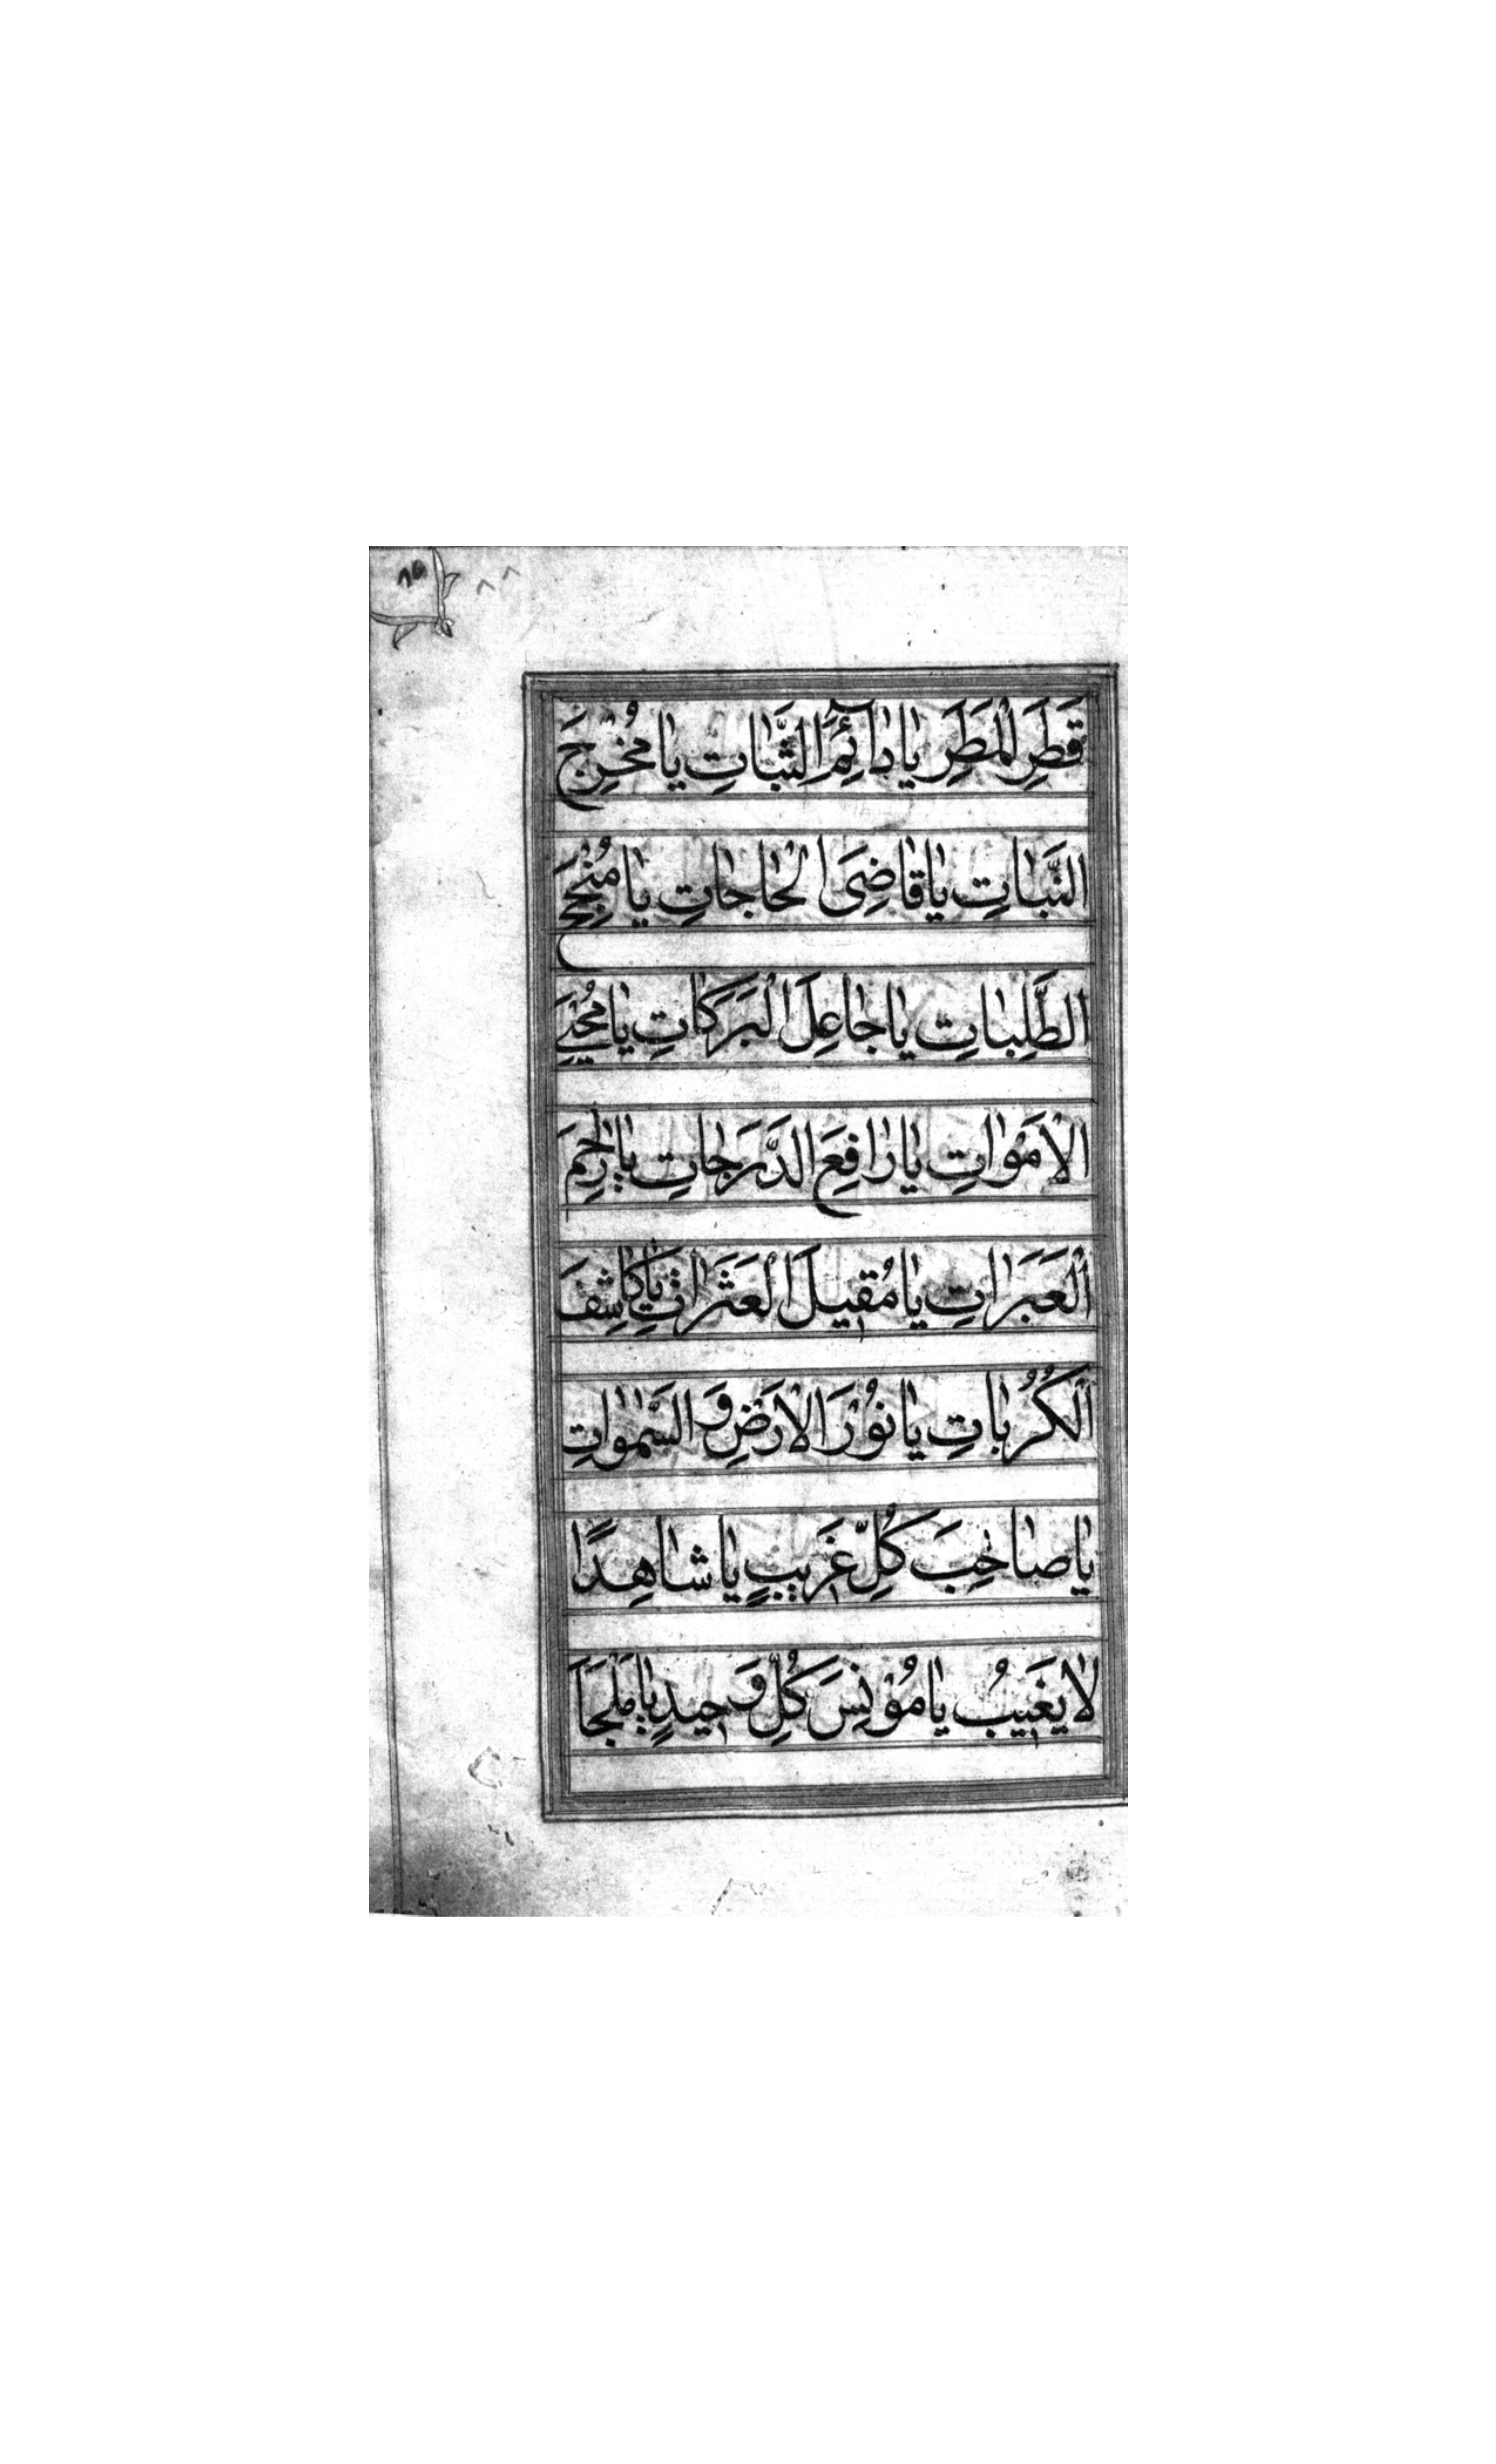 ۸۵
۸۸
قَطَرِ الْمَطَرِ يَا دَآئِمَ الثَّبَاتِ يَا مُخْرِجَ
النَّبَاتِ يَا قَاضِىَ الْحَاجَاتِ يَا مُنْجِحَ
الطَّلِبَاتِ يَا جَاعِلَ الْبَرَكَاتِ يَا مُحْيِىَ
الْاَمْوَاتِ يَا رَافِعَ الدَّرَجَاتِ يَا رَاحِمَ
الْعَبَرَاتِ يَا مُقِيلَ الْعَثَرَاتِ يَا كَاشِفَ
الْكُرُبَاتِ يَا نُورَ الْاَرْضِ وَ السَّمٰوَاتِ
يَا صَاحِبَ كُلِّ غَرِيبٍ يَا شَاهِدًا
لَا يَغِيبُ يَا مُونِسَ كُلِّ وَحِيدٍ يَا مَلْجَاَ